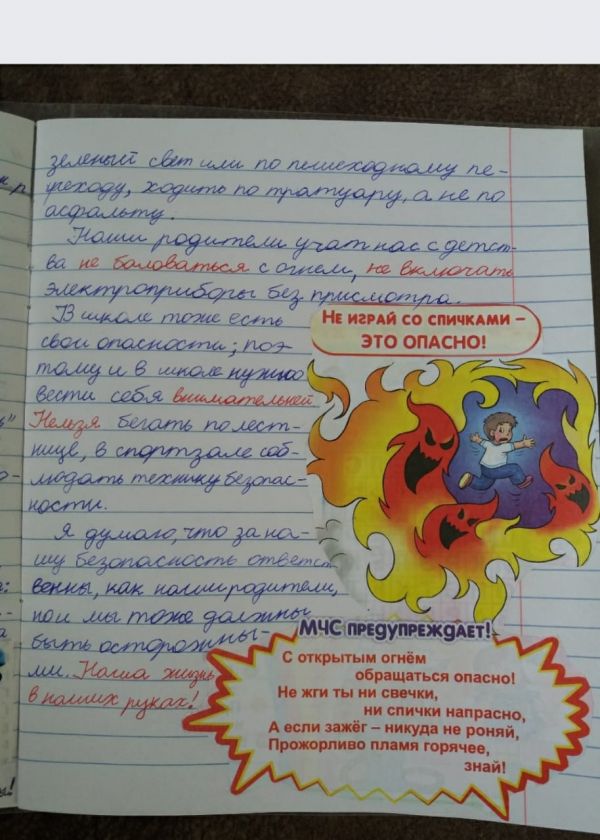 зеленый свет или по пешеходному пе-
реходу, ходить по тратуару, а не по
асфальту.
Наши родители учат нас с детст-
ва не баловаться с огнем, не включать
электроприборы без присмотра.
В школе тоже есть
свои опасности; поэ
тому и в школе нужно
вести себя внимательней
Нельзя бегать по лест-
нице, в спортзале соб-
людать технику безопас-
ности.
Я думаю, что за на-
шу безопасность ответст
венны, как наши родители,
но и мы тоже должны
быть осторожны-
ми. Наша жизнь
в наших руках!
НЕ ИГРАЙ СО СПИЧКАМИ –
ЭТО ОПАСНО!
МЧС ПРЕДУПРЕЖДАЕТ!
С открытым огнём
обращаться опасно!
Не жги ты ни свечки,
ни спички напрасно,
А если зажёг – никуда не роняй,
Прожорливо пламя горячее,
знай!